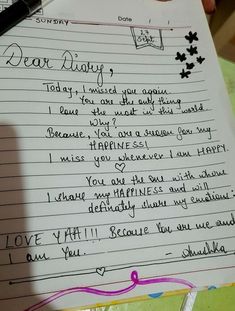 SUNDAY
Date / /
27
Sept
Dear Diary,
Today, I missed you again.
You are the only thing
I love the most in this world.
Why?
Because, You are a reason for my
HAPPINESS!
I miss you whenever I am HAPPY.
You are the one with whom
I share my HAPPINESS and will
definately share my emotions.
LOVE YAA!!! Because You are me and
I am You.
- Anushka